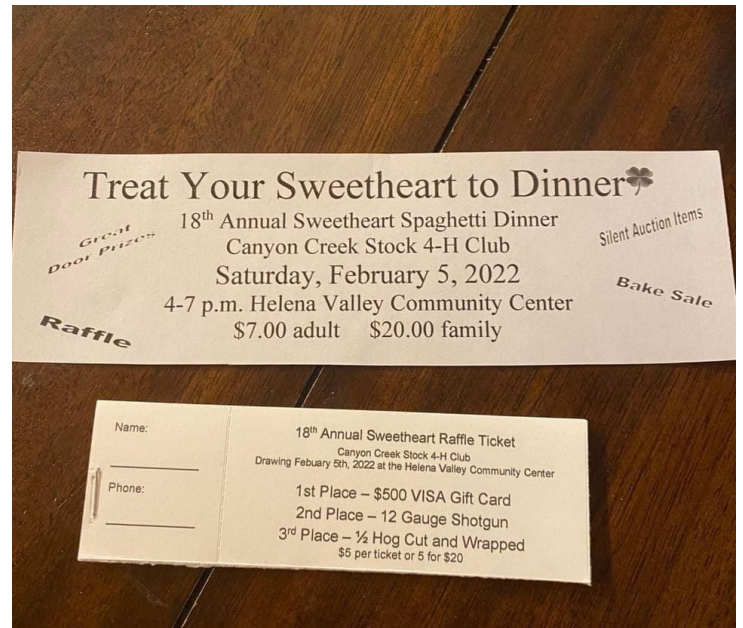 Treat Your Sweetheart to Dinner
18th Annual Sweetheart Spaghetti Dinner
Canyon Creek Stock 4-H Club
Saturday, February 5, 2022
4-7 p.m. Helena Valley Community Center
$7.00 adult $20.00 family
Great
Door Prizes
Raffle
Silent Auction Items
Bake Sale
Name:
Phone:
18th Annual Sweetheart Raffle Ticket
Canyon Creek Stock 4-H Club
Drawing Febuary 5th, 2022 at the Helena Valley Community Center
1st Place – $500 VISA Gift Card
2nd Place – 12 Gauge Shotgun
3rd Place – ½ Hog Cut and Wrapped
$5 per ticket or 5 for $20